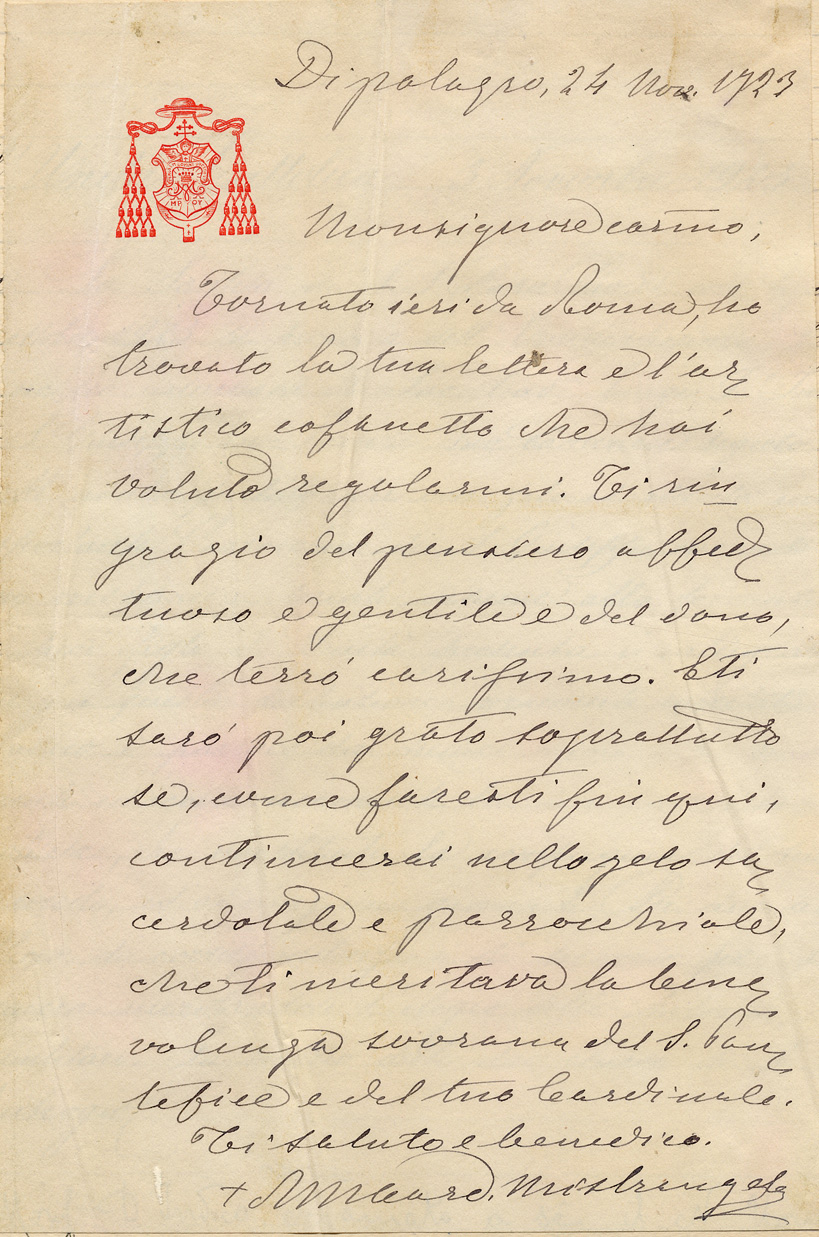 Di palagro, 24 Nov. 1923
Monsignore carmo,
Tornato ieri da Roma, ho
trovato la tua lettera e l'ar
tistico cofanetto che hai
voluto regalarmi. Ti rin
grazio del pensiero affet
tuoso e gentile e del dono,
che terró carissimo. E ti
saró poi grato soprattutto
se, come facesti fin qui,
continuerai nello zelo sa
cerdotale e parrocchiale,
che ti meritava la bene
volenza sovrana del S. Pon
tefice e del tuo Cardinale.
Ti saluto e benedico.
+ AM Card. Mistrangelo